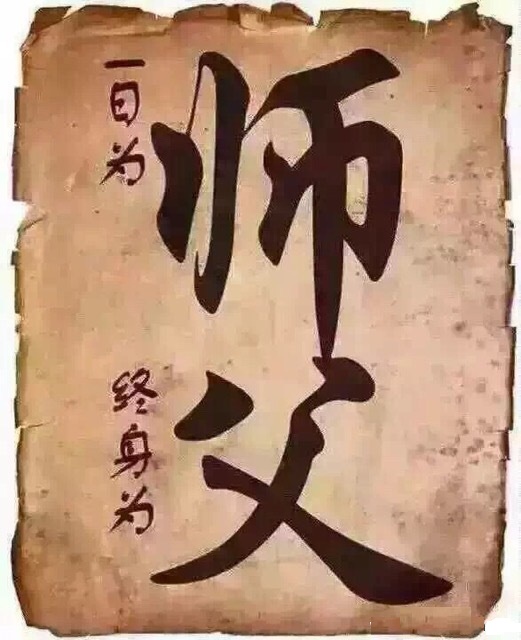 一日为
师
终身为
父